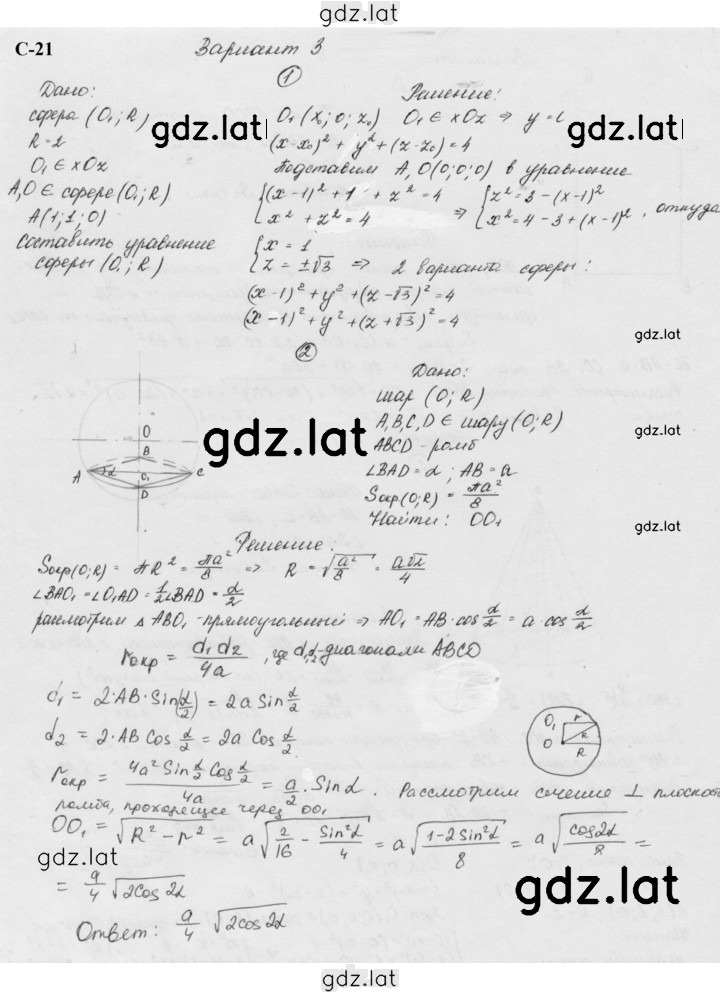 gdz.lat
С-21
Вариант 3
1
Дано:
сфера (O₁; R)
R = 2
O₁ ∈ xOz
A, O ∈ сфере (O₁; R)
A(1; 1; 0)
Составить уравнение
сферы (O₁; R)
Решение:
O₁ (x₀; 0; z₀) O₁ ∈ xOz ⇒ y = 0
(x-x₀)² + y² + (z-z₀)² = 4
Подставим A, O(0; 0; 0) в уравнение
{(x-1)² + 1 + z² = 4
{x² + z² = 4
⇒ {z² = 3 - (x-1)²
{x² = 4 - 3 + (x-1)², откуда
{x = 1
{z = ±√3 ⇒ 2 варианта сферы:
(x-1)² + y² + (z-√3)² = 4
(x-1)² + y² + (z+√3)² = 4
gdz.lat
gdz.lat
gdz.lat
gdz.lat
2
O
B
A α O₁ C
D
Дано:
шар (O; R)
A, B, C, D ∈ шару (O; R)
ABCD - ромб
∠BAD = α; AB = a
Sокр(O; R) = πa²/8
Найти: OO₁
gdz.lat
gdz.lat
Решение:
Sокр(O; R) = πR² = πa²/8 ⇒ R = √(a²/8) = a√2/4
∠BAO₁ = ∠O₁AD = 1/2∠BAD = α/2
рассмотрим Δ ABO₁ - прямоугольный ⇒ AO₁ = AB·cos α/2 = a·cos α/2
rокр = d₁d₂/4a, где d₁,d₂-диагонали ABCD
d₁ = 2·AB·Sin(α/2) = 2a Sin α/2
d₂ = 2·AB Cos α/2 = 2a Cos α/2
O₁ r
O R
R
rокр = 4a² Sin α/2 Cos α/2 / 4a = a/2 · Sin α. Рассмотрим сечение ⊥ плоскост
ромба, проходящее через OO₁
OO₁ = √(R² - r²) = a√(2/16 - Sin²α/4) = a√((1-2Sin²α)/8) = a√(cos2α/8) =
= a/4 √(2cos 2α)
Ответ: a/4 √(2cos 2α)
gdz.lat
gdz.lat
gdz.lat